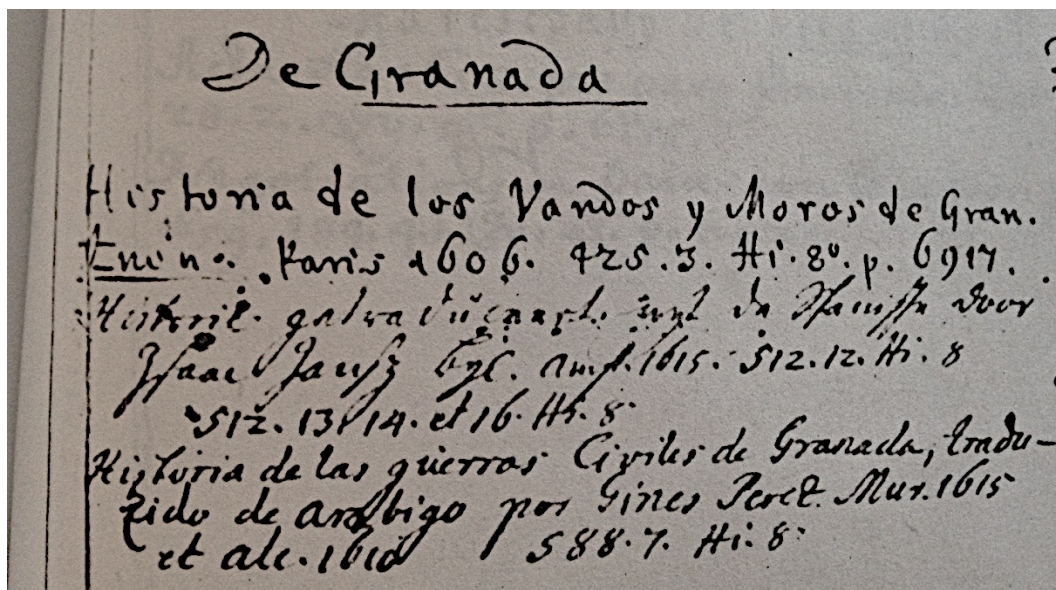 De Granada
Historia de los Vandos y Moros de Gran.
Paris 1606. 425.3. Hi. 8º. p. 6917.
Historie door
Isaac Jansz Byl. Amst. 1615. 512.12. Hi. 8
512. 13. 14. et 16. Hi. 8.
Historia de las guerras Civiles de Granada, tradu-
zido de arabigo por Gines Perez. Mur. 1615
et alc. 1610 588.7. Hi. 8.